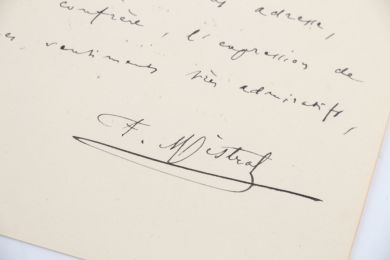 adresse,
confrère, l'expression de
sentiments très admiratifs,
F. Mistral